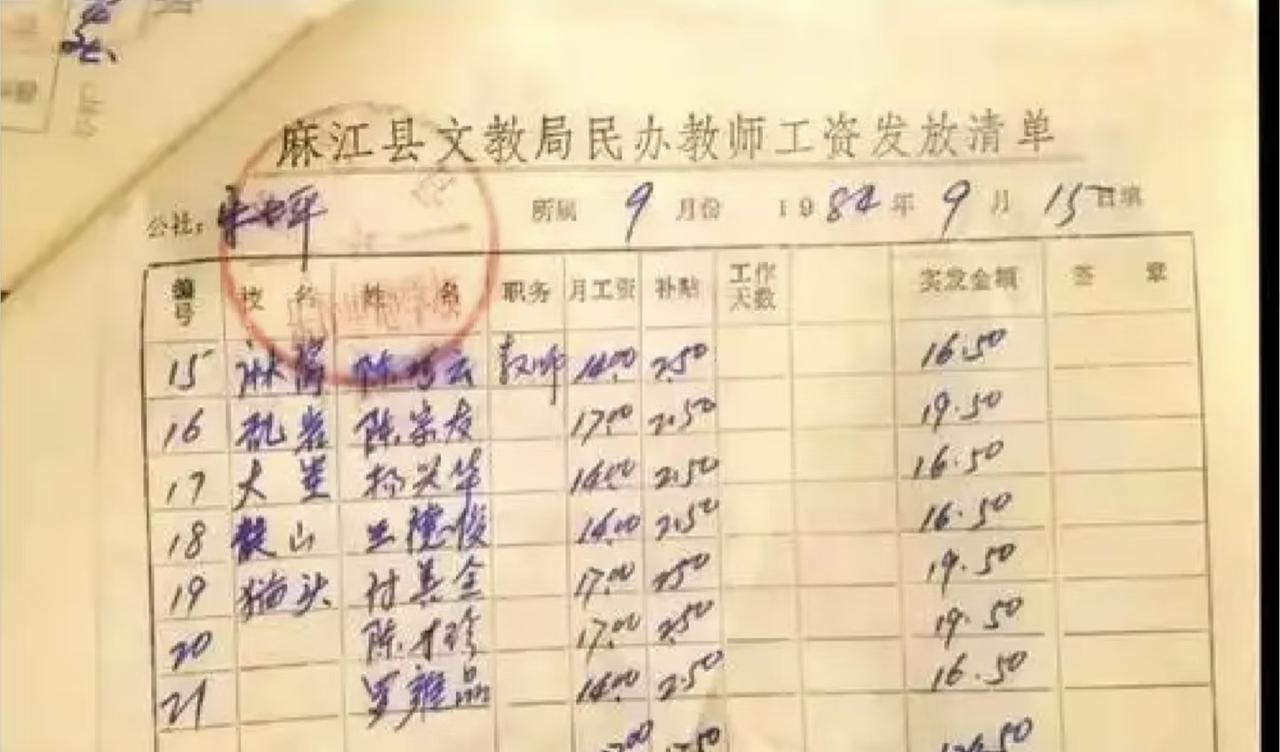 麻江县文教局民办教师工资发放清单
公社： 所属 9 月份 1984 年 9 月 15 日填
编号 校名 姓名 职务 月工资 补贴 工作天数 实发金额 签章
15 麻窝 陈 云 教师 14.00 2.50 16.50
16 乱岩 陈宗友 17.00 2.50 19.50
17 大 杨兴华 14.00 2.50 16.50
18 山 王德俊 14.00 2.50 16.50
19 猫头 付其全 17.00 2.50 19.50
20 陈才珍 17.00 2.50 19.50
21 罗雅品 14.00 2.50 16.50